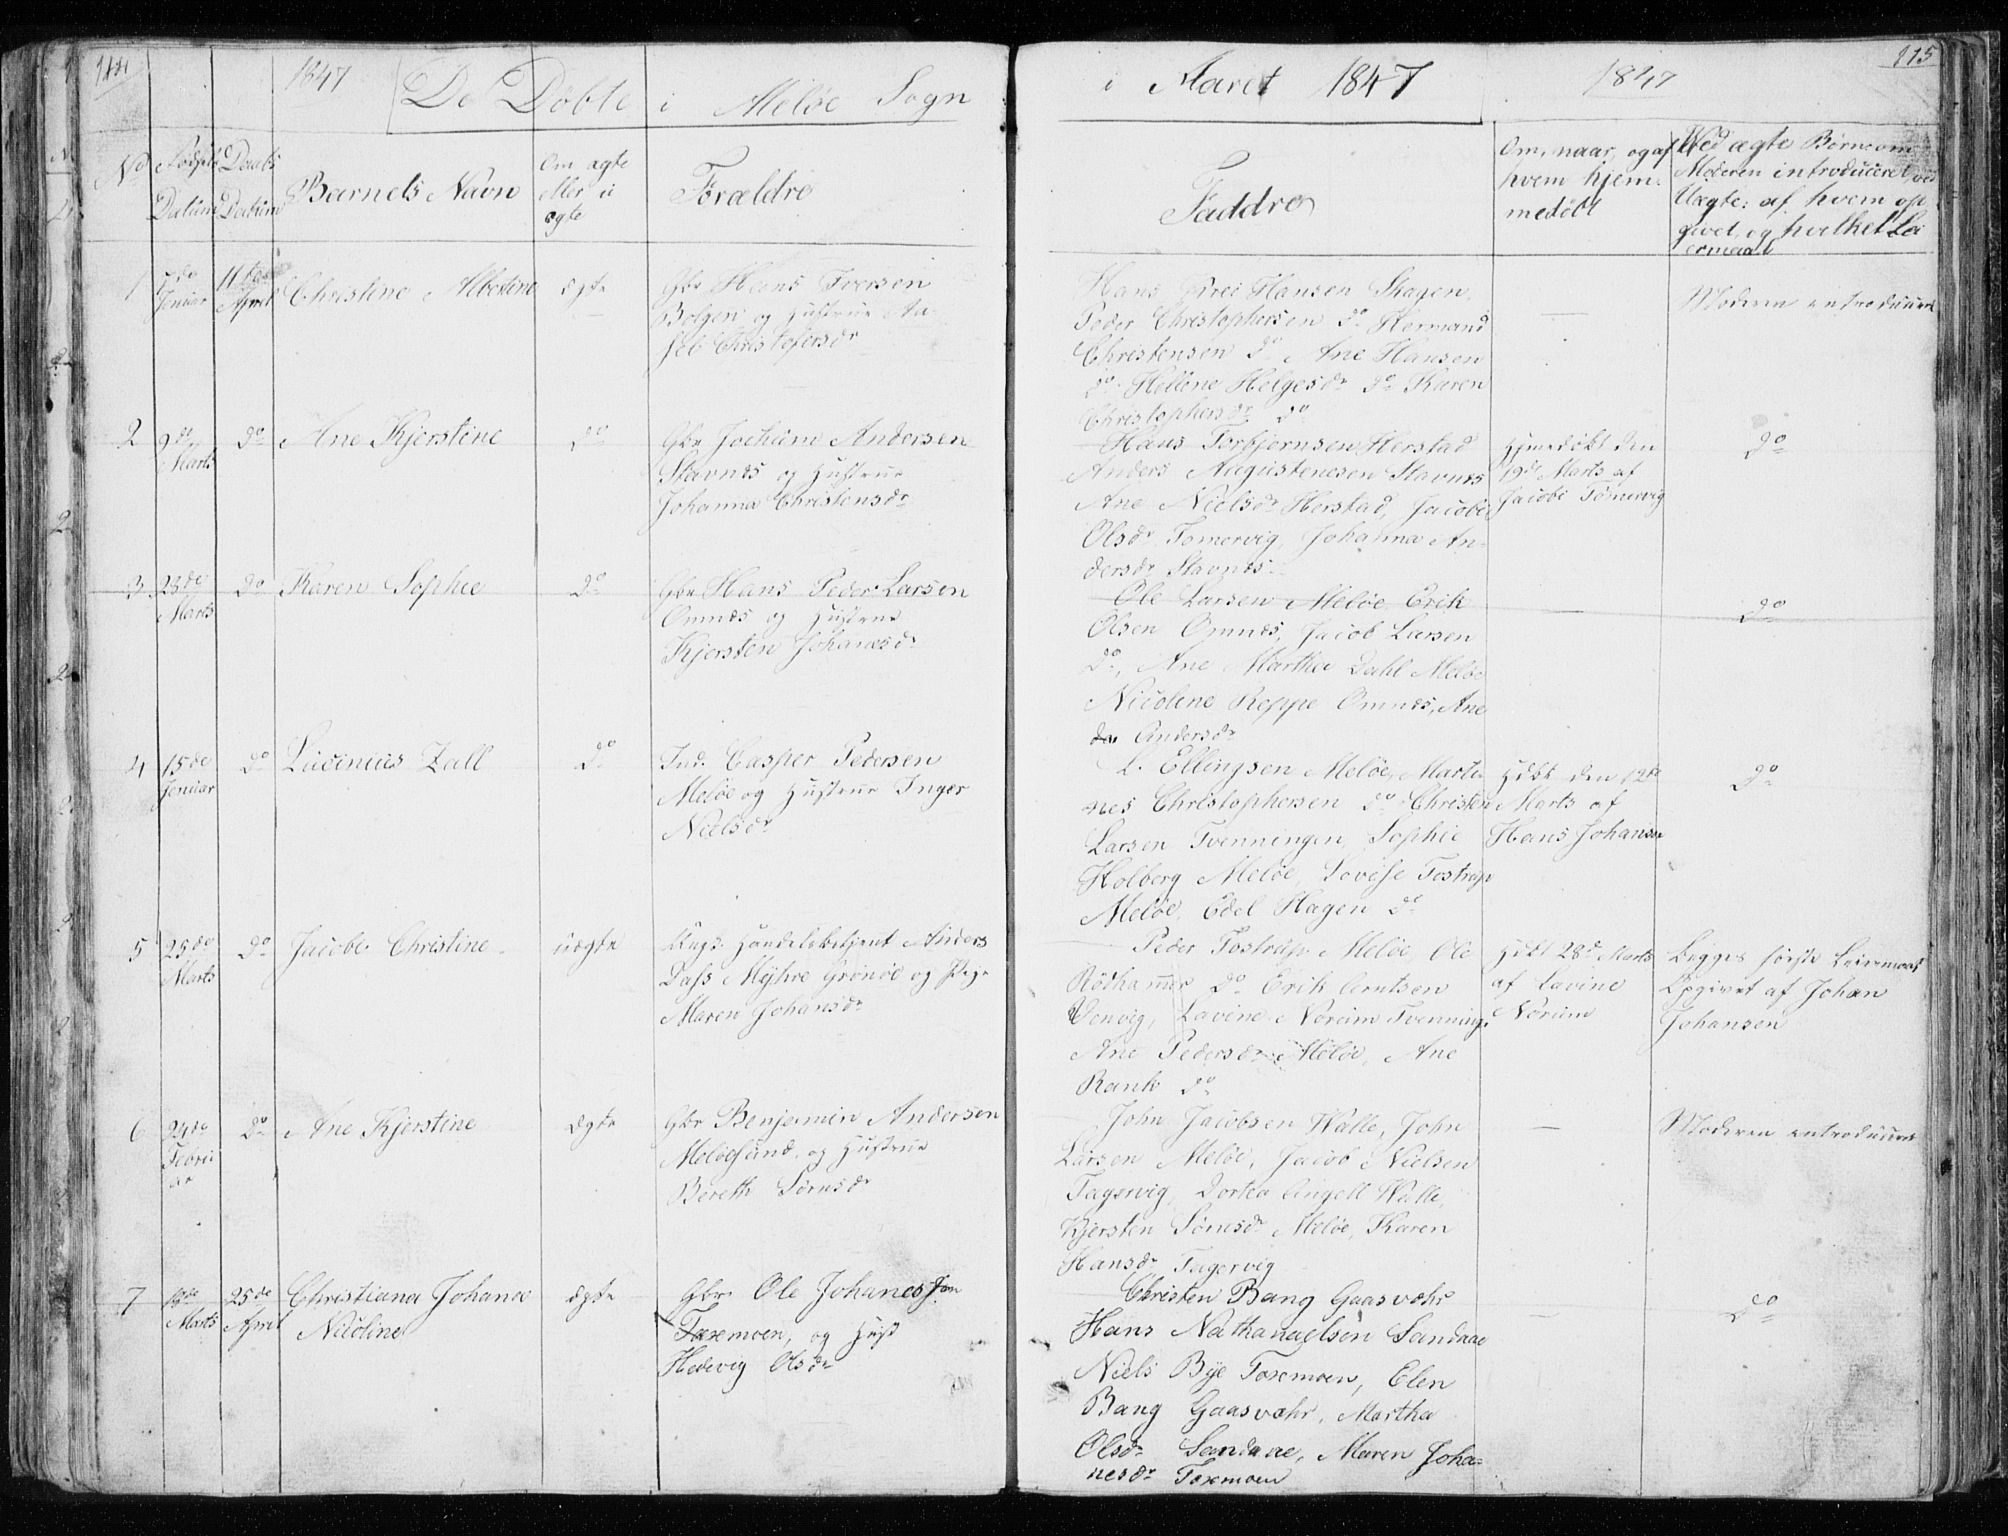 1847 De Døbte i Meløe Sogn
i Aaret 1847
1847
115
No
Fødsels Datum
Daabs Datum
Barnets Navn
Om ægte eller uægte
Forældre
Faddre
Om, naar, og af hvem hjemmedøbt
Ved ægte Børn om
Moderen introduceret ved
Uægte: af hvem op
givet og hvilket Lei
ermaal
1 Januar 11te April Christine Albertine ægte
Gbr Hans Iversen
Bolgen og Hustrue
Christofersdr
Hans Hansen Skagen
Peder Christophersen do Hermand
Christensen do Ane Hansen
do Helene Helgesdr do Karen
Christophersdr do
—
Moderen introduceret
2 9de Marts do Ane Kjerstine do
Gbr Jochum Andersen
Stavnæs og Hustrue
Johanna Christensdr
Hans Torbjørnsen Herstad
Anders Augustenesen Stavnæs
Ane Nielsdr Herstad, Jacobe
Olsdr Tømervig, Johanna An-
dersdr Stavnæs
Hjemdøbt den
19de Marts af
Jacobe Tømervig
do
3 23de Marts do Karen Sophie do
Gbr Hans Peder Larsen
Omnæs og Hustrue
Kjersten Johanesdr
Ole Larsen Meløe, Erik
Olsen Omnæs, Jacob Larsen
do, Ane Martha Dahl Meløe
Nicoline Reppe Omnæs, Ane
do Andersdr
—
do
4 15de Januar do Lucinius Zall do
Ind. Casper Pedersen
Meløe og Hustrue Inger
Nielsdr
L. Ellingsen Meløe, Marte-
nes Christophersen do Christen
Larsen Tvenningen, Sophie
Holberg Meløe, Lovise Tostrup
Meløe, Edel Hagen do
Hdbt den 12te
Marts af
Hans Johansen
do
5 25de Marts do Jacobe Christine uægte
Ungk. Handelsbetjent Anders
Dass Myhre Grønøe og Pige
Maren Johansdr
Peder Tostrup Meløe, Ole
Rødhammer do Erik Arntsen
Venvig, Lavine Norum Tvenning.
Ane Pedersdr Meløe, Ane
Rank do
Hdbt 28de Marts
af Lavine
Norum
Begges første Leiermaal
Opgivet af Johan
Johansen
6 24de Februar do Ane Kjerstine ægte
Gbr Benjamin Andersen
Meløesund, og Hustrue
Bereth Sørnsdr
John Jacobsen Walle, John
Larsen Meløe, Jacob Nielsen
Fagervig, Dortea Angell Walle,
Kjersten Sørnsdr Meløe, Karen
Hansdr Fagervig
—
Moderen introduceret
7 Marts 25de April Christiana Johanne
Nicoline ægte
Gbr Ole Johanessen
Toremoen, og Hust
Hedevig Olsdr
Christen Bang Gaasvæhr
Hans Nathanaelsen Sandaae
Niels Bye Toremoen, Elen
Bang Gaasvæhr, Martha
Olsdr Sandaae, Maren Joha-
nesdr Toremoen
—
do